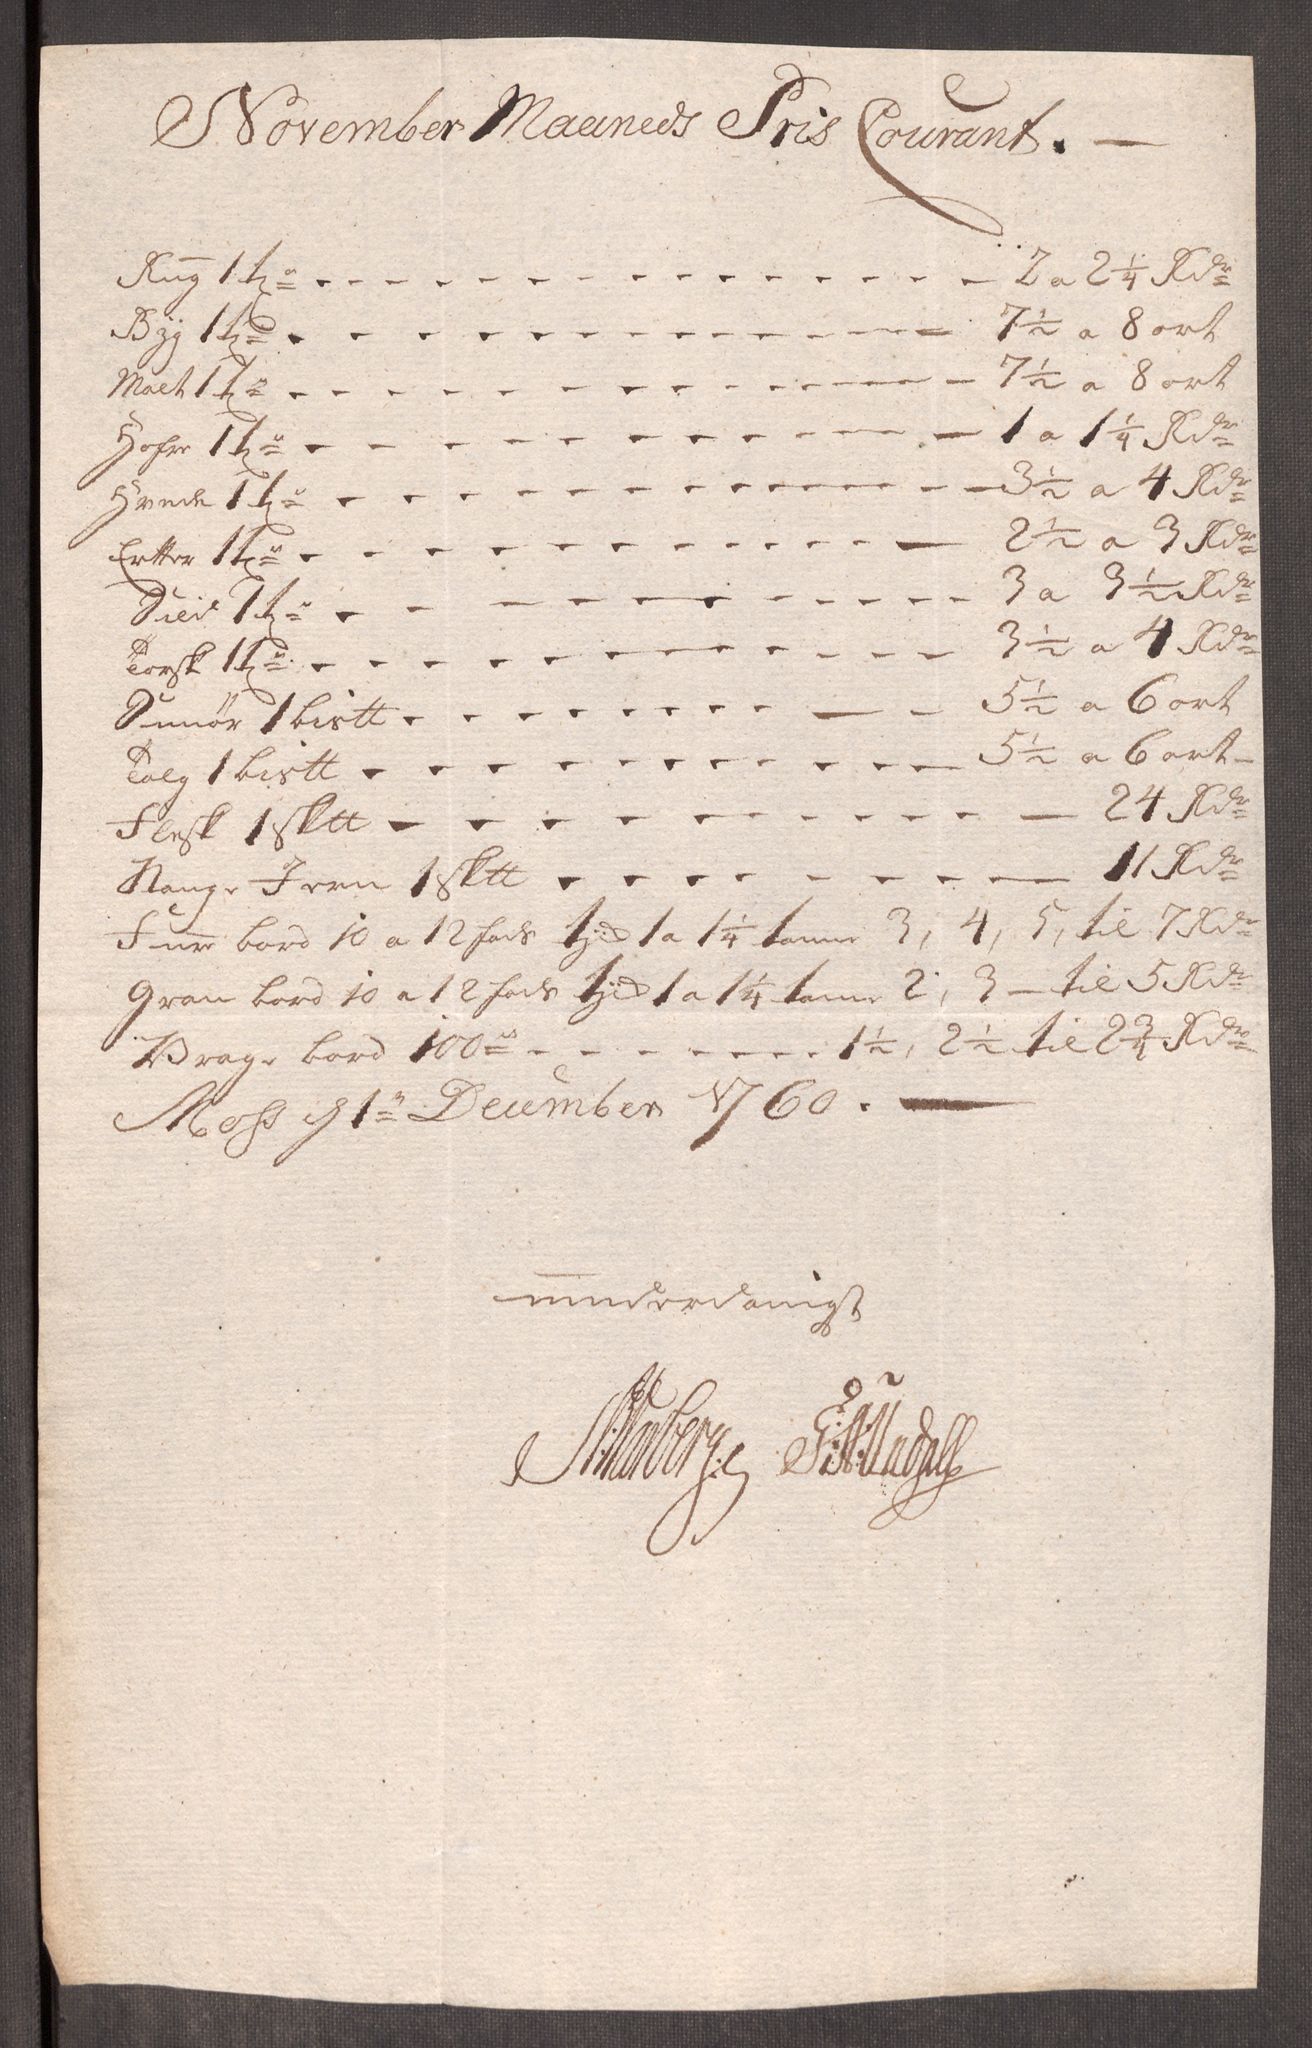 November Maaneds Pris Courant. —
Rug 1 tꝫ 2 a 2¼ Rdr
Byg 1 tꝫ 7½ a 8 ort
Malt 1 tꝫ 7½ a 8 ort
Hafre 1 tꝫ 1 a 1¼ Rdr
Hvede 1 tꝫ 3½ a 4 Rdr
Ertter 1 tꝫ 2½ a 3 Rdr
Sild 1 tꝫ 3 a 3½ Rdr
Torsk 1 tꝫ 3½ a 4 Rdr
Smiör 1 bistt 5½ a 6 ort
Talg 1 bistt 5½ a 6 ort
Flesk 1 sktt 24 Rdr
Stang Jern 1 sktt 11 Rdr
Furr bord 10 a 12 fods 1 a 1¼ tomme 3, 4, 5, til 7 Rdr
Gran bord 10 a 12 fods 1 a 1¼ tomme 2, 3 — til 5 Rdr
Vrage bord 100 1½, 2½ til 2¾ Rdr
Moss d 1 December 1760. —
underdanigst